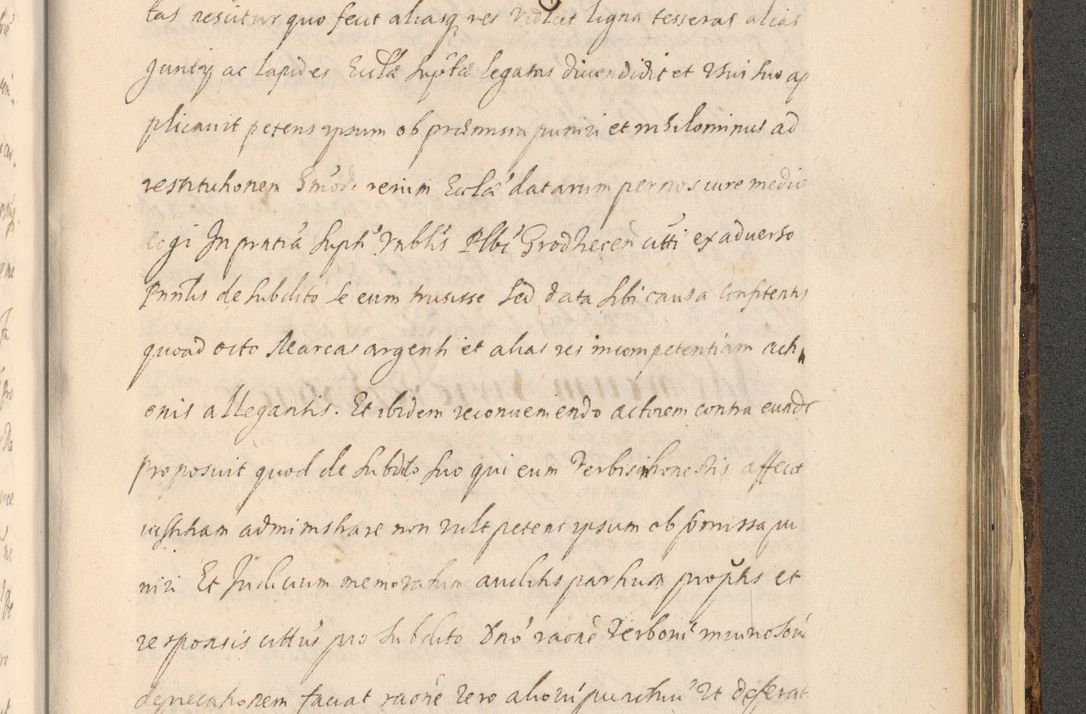 tas nescitur quo fecit aliasq res vidlt ligna tesseras alias
guntÿ ac lapides Eccłæ supłæ legatas divendidit et usui suo ap
plicavit petens ipsum ob præmissa puniri et nihilominus ad
restitutionem hmodi rerum Eccłæ datarum per nos iure medio
cogi In prntiâ Supti Vnblis Plbi Grodzecen citti ex adverso
Pnnlis de subdito se eum trusisse sed data sibi causa confitentis
quoad octo Marcas argenti et alias res incompetentiam acti
onis allegantis. Et ibidem reconveniendo actorem contra eunde
proposuit quod de subdito suo qui eum verbis inhonestis affecit
iustitiam administrare non vult petens ipsum ob præmissa pu
niri Et Iudicium memoratum auditis partium proptis et
responsis cittus pro subdito Dno raone verborum iniuriosorum
deprecationem faciat raone vero aliorum punctuum ut deferat